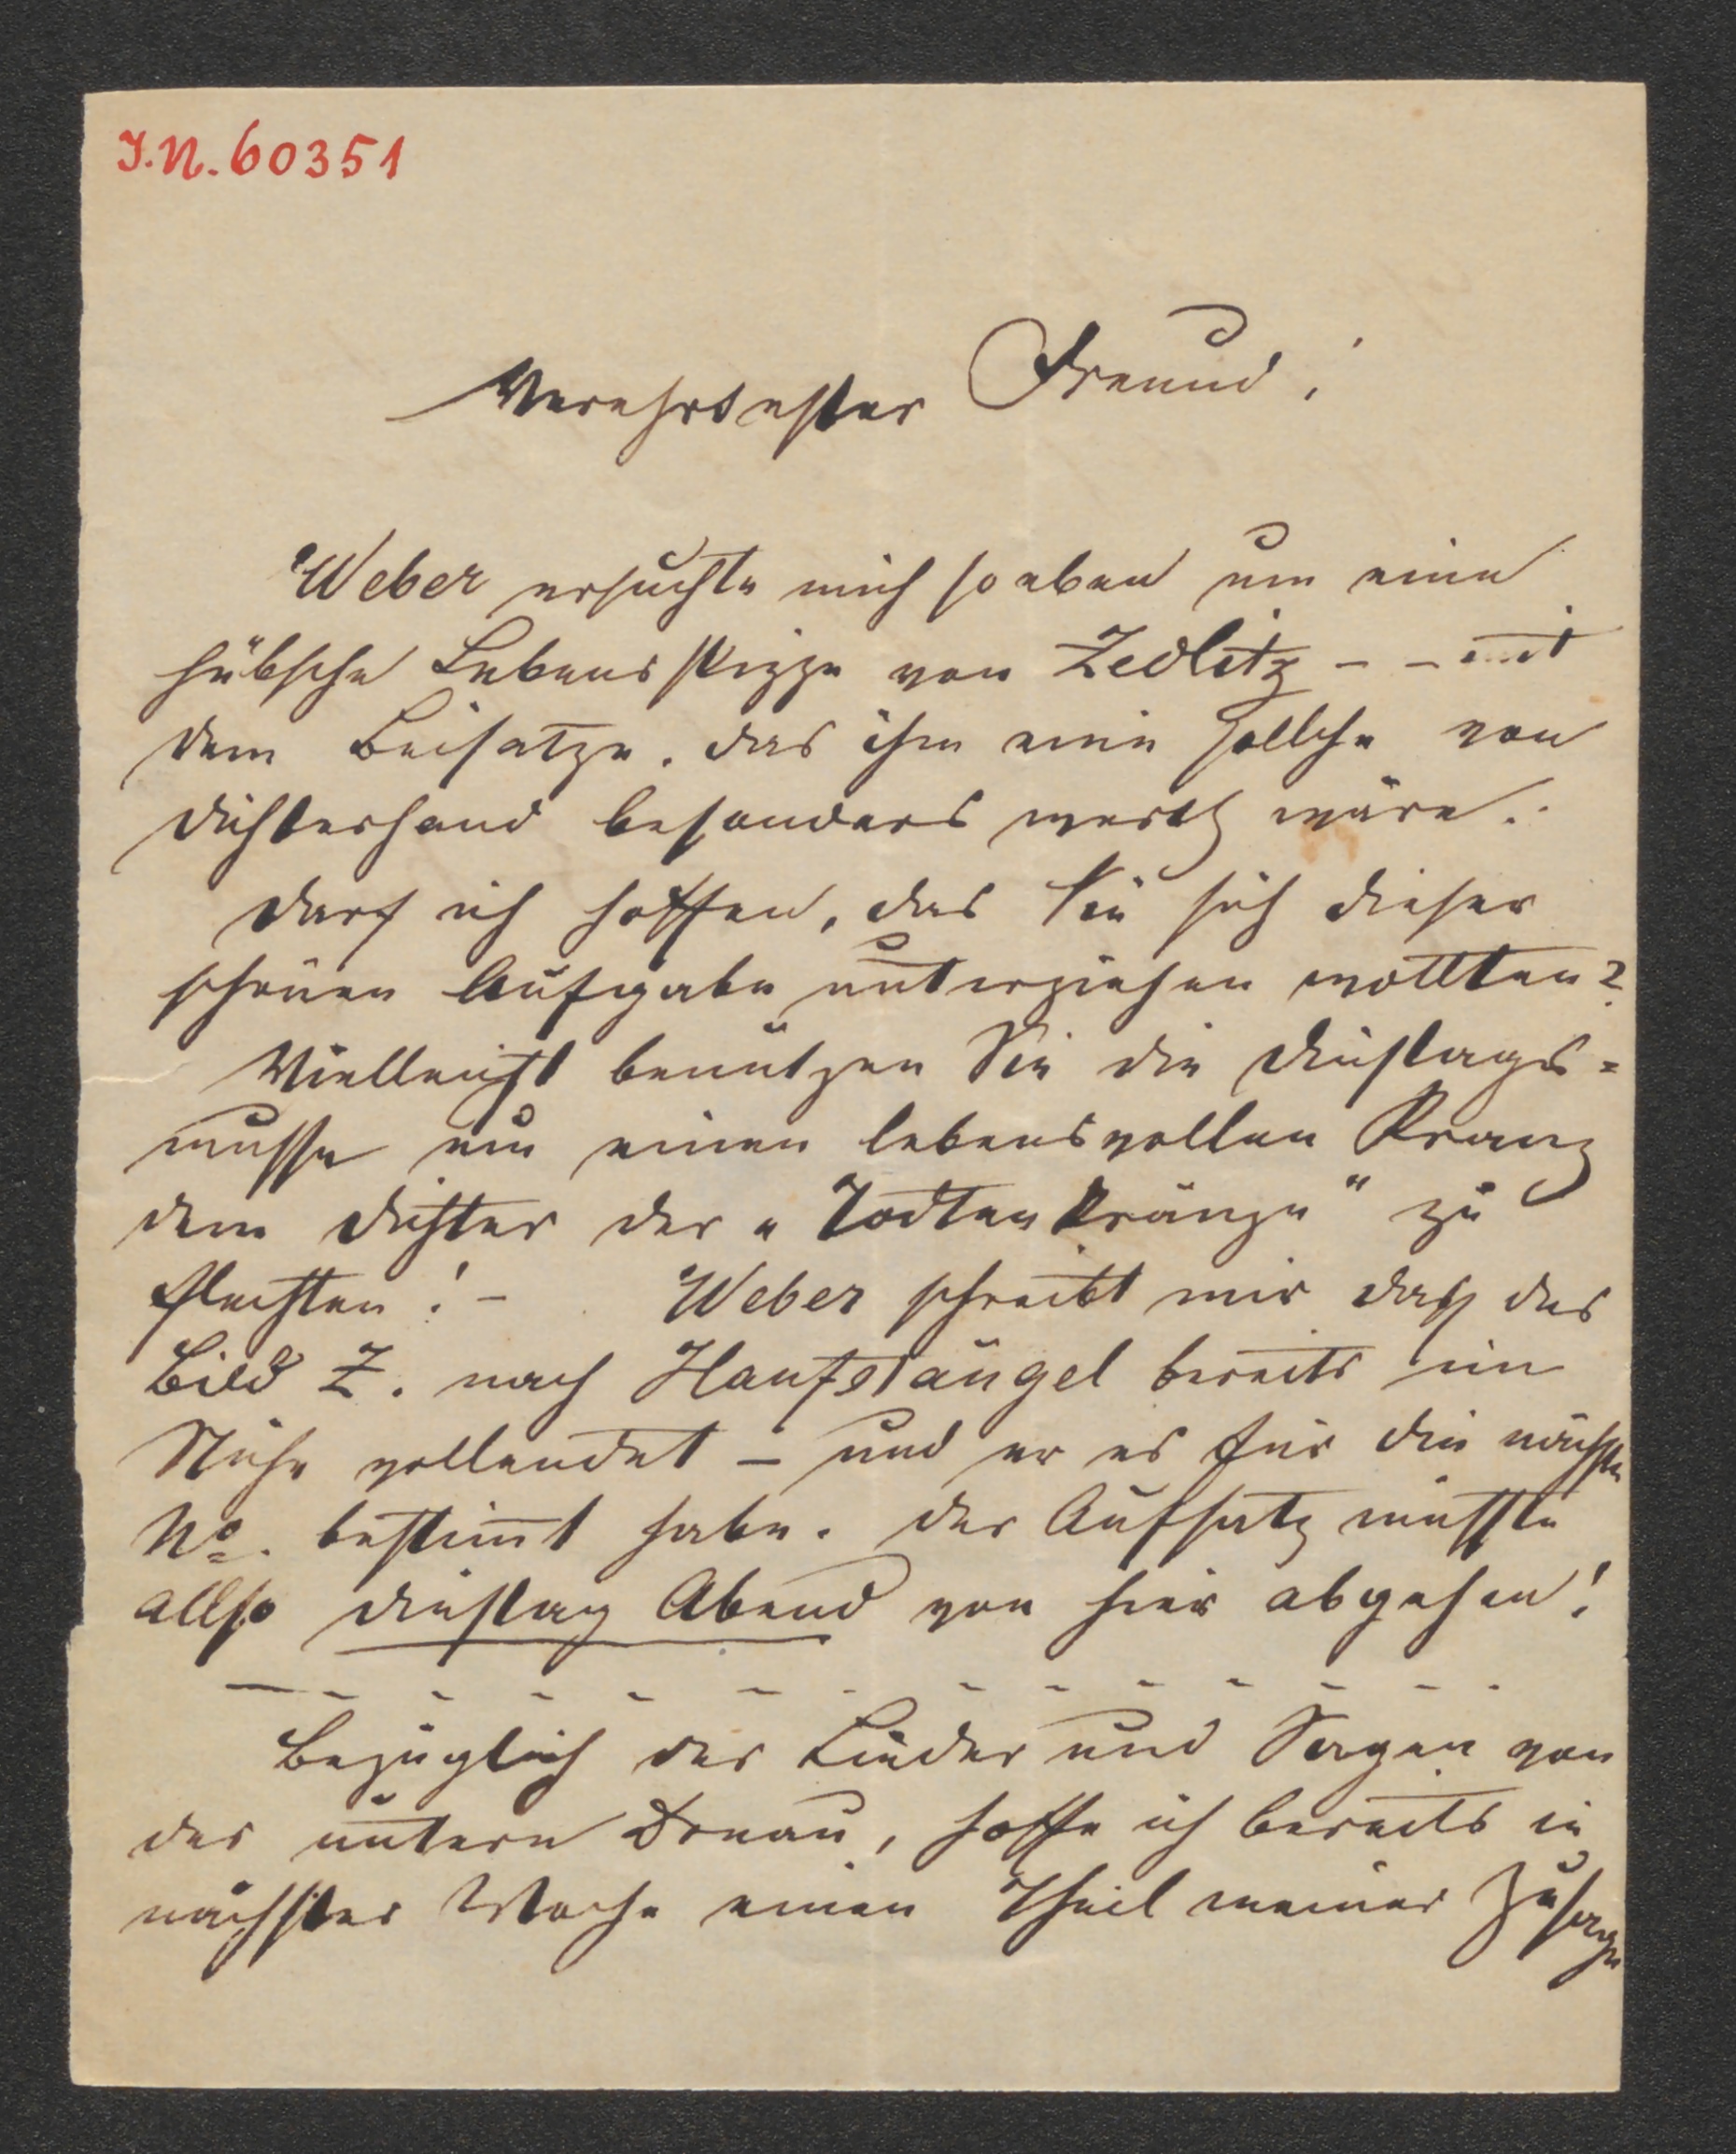 J.N. 60351
Verehrtester Freund!
Weber ersuchte mich so eben um eine
hübsche Lebensskizze von Zedlitz - - mit
dem Beisatze, das ihm eine sollche von
Dichterhand besonders werth wäre.
Darf ich hoffen, das Sie sich dieser
schönen Aufgabe unterziehen wollten?
Vielleicht benützen Sie die Dinstags=
musse um einen lebensvollen Kranz
dem Dichter der „Todtenkränze" zu
flechten! - Weber schreibt mir daß das
Bild Z. nach Hanfstängel bereits im
Stiche vollendet - und er es für die nächste
No. bestim̅t habe. Der Aufsatz müsste
allso Dinstag Abend von hier abgehen!
Bezüglich der Lieder und Sagen von
der untern Donau, hoffe ich bereits in
nächster Woche einen Theil meiner Zusage